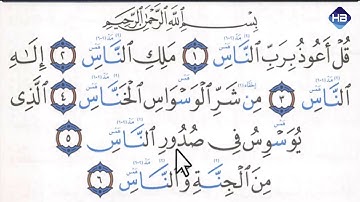 HB
بِسْمِ ٱللَّهِ ٱلرَّحْمَٰنِ ٱلرَّحِيمِ
قُلْ أَعُوذُ بِرَبِّ ٱلنَّاسِ ١ مَلِكِ ٱلنَّاسِ ٢ إِلَٰهِ
ٱلنَّاسِ ٣ مِن شَرِّ ٱلْوَسْوَاسِ ٱلْخَنَّاسِ ٤ ٱلَّذِى
يُوَسْوِسُ فِى صُدُورِ ٱلنَّاسِ ٥
مِنَ ٱلْجِنَّةِ وَٱلنَّاسِ ٦